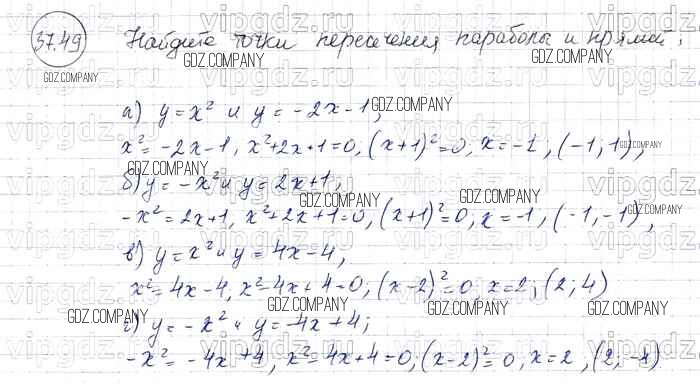 37.49 Найдите точки пересечения параболы и прямой:
а) y = x² и y = -2x - 1;
x² = -2x - 1, x² + 2x + 1 = 0, (x + 1)² = 0, x = -1, (-1; 1),
б) y = -x² и y = 2x + 1;
-x² = 2x + 1, x² + 2x + 1 = 0, (x + 1)² = 0, x = -1, (-1, -1),
в) y = x² и y = 4x - 4,
x² = 4x - 4, x² - 4x + 4 = 0, (x - 2)² = 0, x = 2; (2; 4)
г) y = -x² и y = -4x + 4;
-x² = -4x + 4, x² - 4x + 4 = 0; (x - 2)² = 0, x = 2, (2; -4)
GDZ.COMPANY
vipgdz.ru